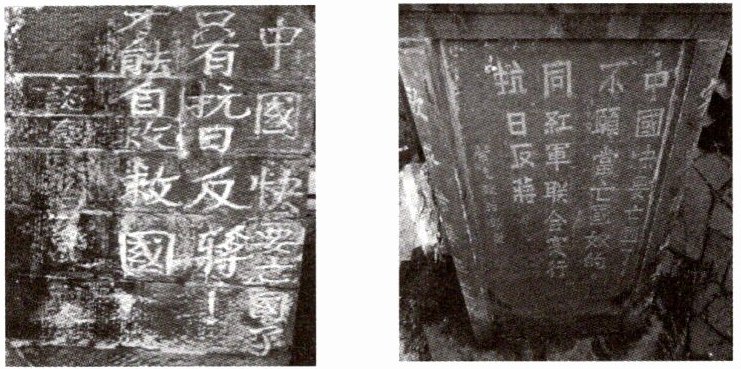 中國快要亡國了
只有抗日反蔣！
才能自救救國
中國要亡
不願當亡國奴的
同紅軍联合實行
抗日反蔣